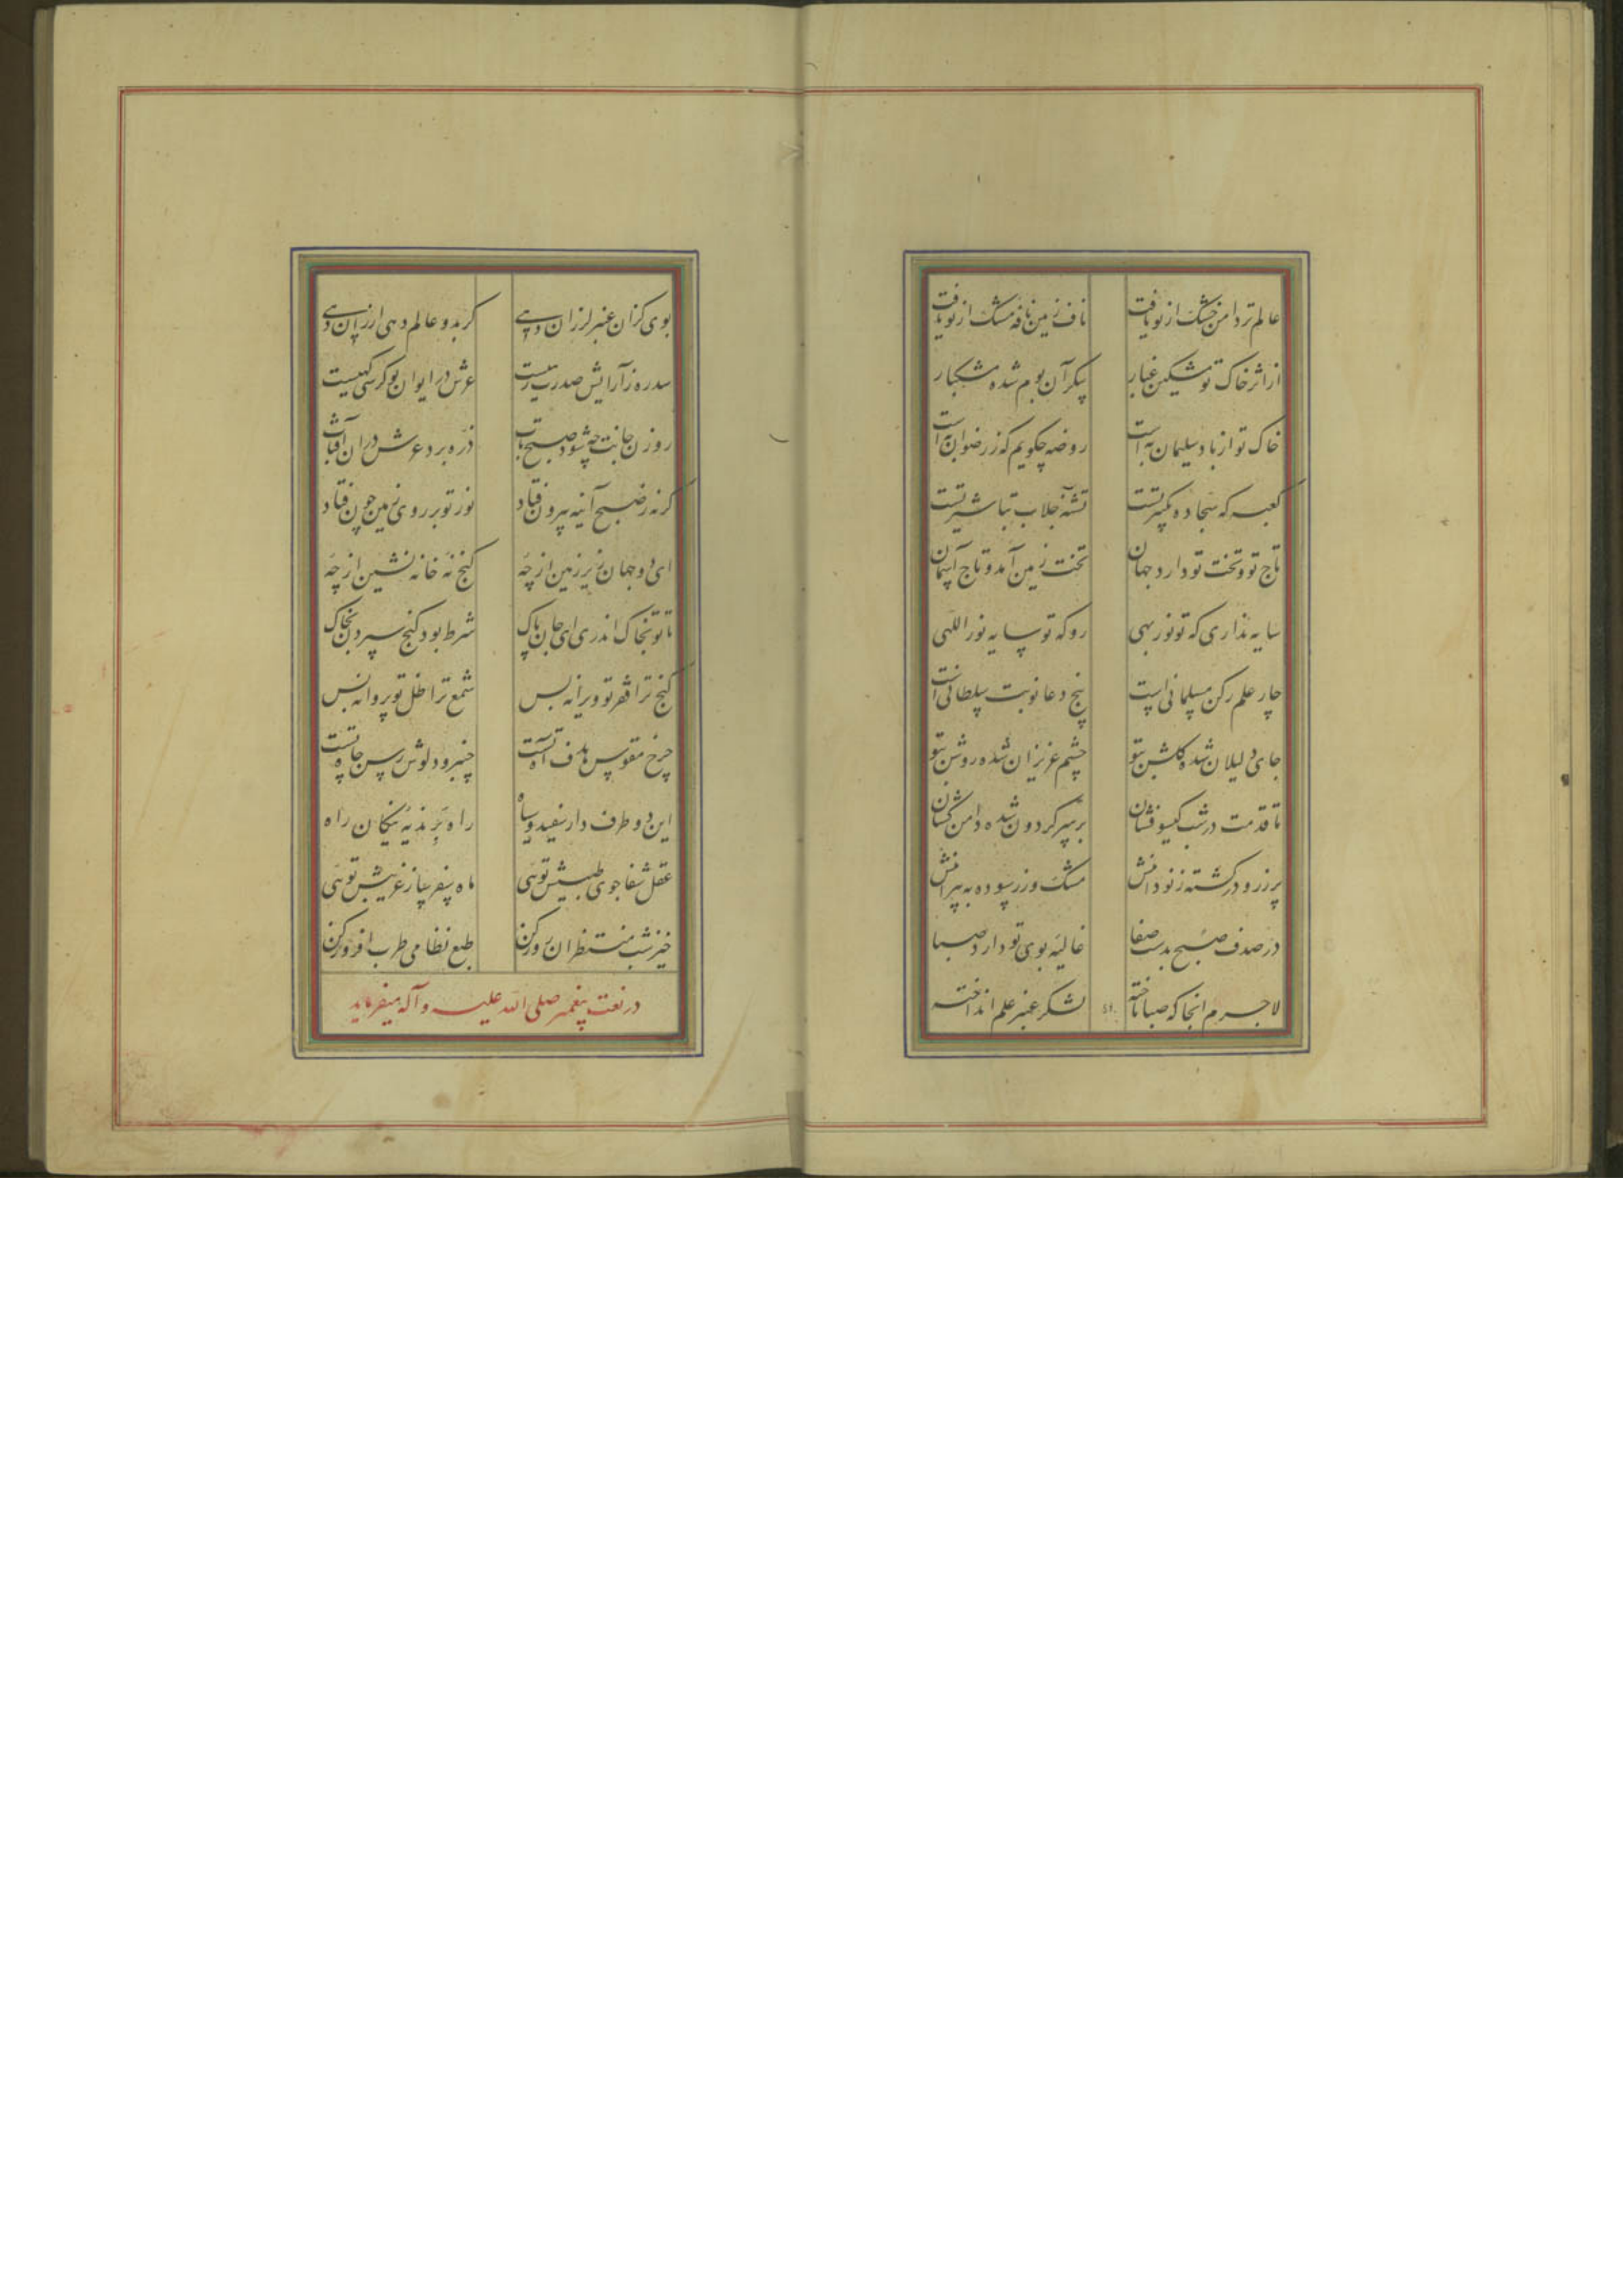 عالم تر دامن خشک از تو یافت
ناف زمین نافه مشک از تو یافت
از اثر خاک تو مشکین غبار
پیکر آن بوم شده مشکبار
خاک تو از باد سلیمان به است
روضه چکویم که ز رضوان به است
کعبه که سجاده تکبیر تست
تشنه جلاب تباشیر تست
تاج تو و تخت تو دارد جهان
تخت زمین آمد و تاج آسمان
سایه نداری که تو نور مهی
رو که تو سایه نور اللهی
چار علم رکن مسلمانی است
پنج دعا نوبت سلطانی است
جای دلیلان شده گلشن بتو
چشم عزیزان شده روشن بتو
تا قدمت در شب گیسو فشان
بر سر گردون شده دامن کشان
پر زر و در گشته ز تو دامنش
مشک و زر سوده به پیرامنش
در صدف صبح بدست صفا
غالیه بوی تو دارد صبا
لاجرم انجا که صبا تاخته
لشکر عنبر علم انداخته
بوی کزان عنبر لرزان دهی
کر بدو عالم دهی ارزان دهی
سدره ز آرایش صدرت زهیست
عرش در ایوان تو کرسی نهیست
روزن جانت چو شود صبح تاب
ذره بود عرش در ان آفتاب
کر نه ز صبح آینه بیرون فتاد
نور تو بر روی زمین چون فتاد
ای دو جهان زیر زمین از چه
کنج نه خانه نشین از چه
تا تو بخاک اندری ای جان پاک
شرط بود کنج سپردن بخاک
کنج ترا فقر تو ویرانه بس
شمع ترا ظل تو پروانه بس
چرخ مقوس هدف آه تست
چنبر دلوش رسن چاه تست
این دو طرف دار سفید و سیاه
راه تو بر پیکان راه
عقل شفا جوی طبیبش توئی
ماه سفر ساز غریبش توئی
خیز شب منتظران روز کن
طبع نظامی طرب افروز کن
در نعت پیغمبر صلی الله علیه و آله میفرماید